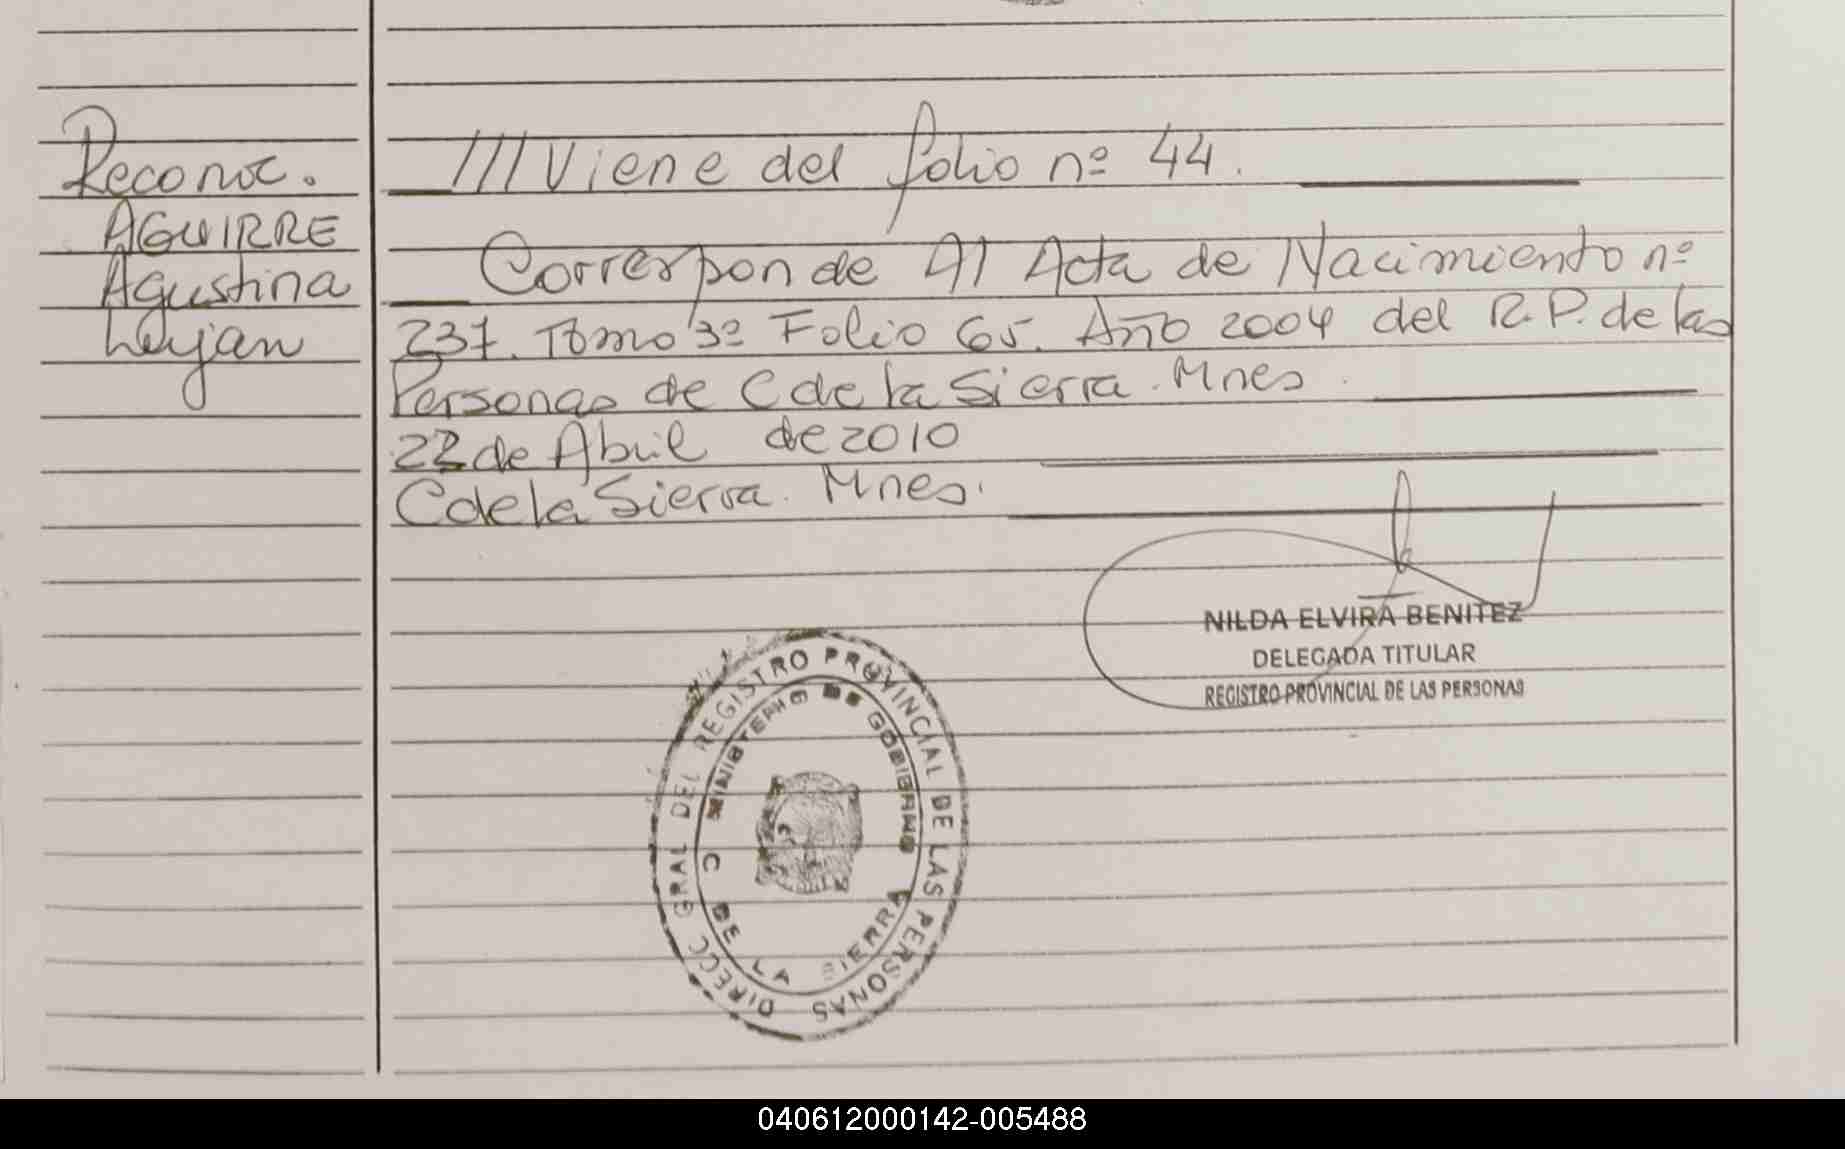 Reconoc.
AGUIRRE
Agustina
Lujan
///Viene del folio nº 44.
Corresponde Al Acta de Nacimiento nº
237. Tomo 3º Folio 65. Año 2004 del R.P. de las
Personas de C de la Sierra. Mnes.
22 de Abril de 2010
C de la Sierra. Mnes.
NILDA ELVIRA BENITEZ
DELEGADA TITULAR
REGISTRO PROVINCIAL DE LAS PERSONAS
DIRECC GRAL DEL REGISTRO PROVINCIAL DE LAS PERSONAS
MINISTERIO DE GOBIERNO
C DE LA SIERRA
040612000142-005488